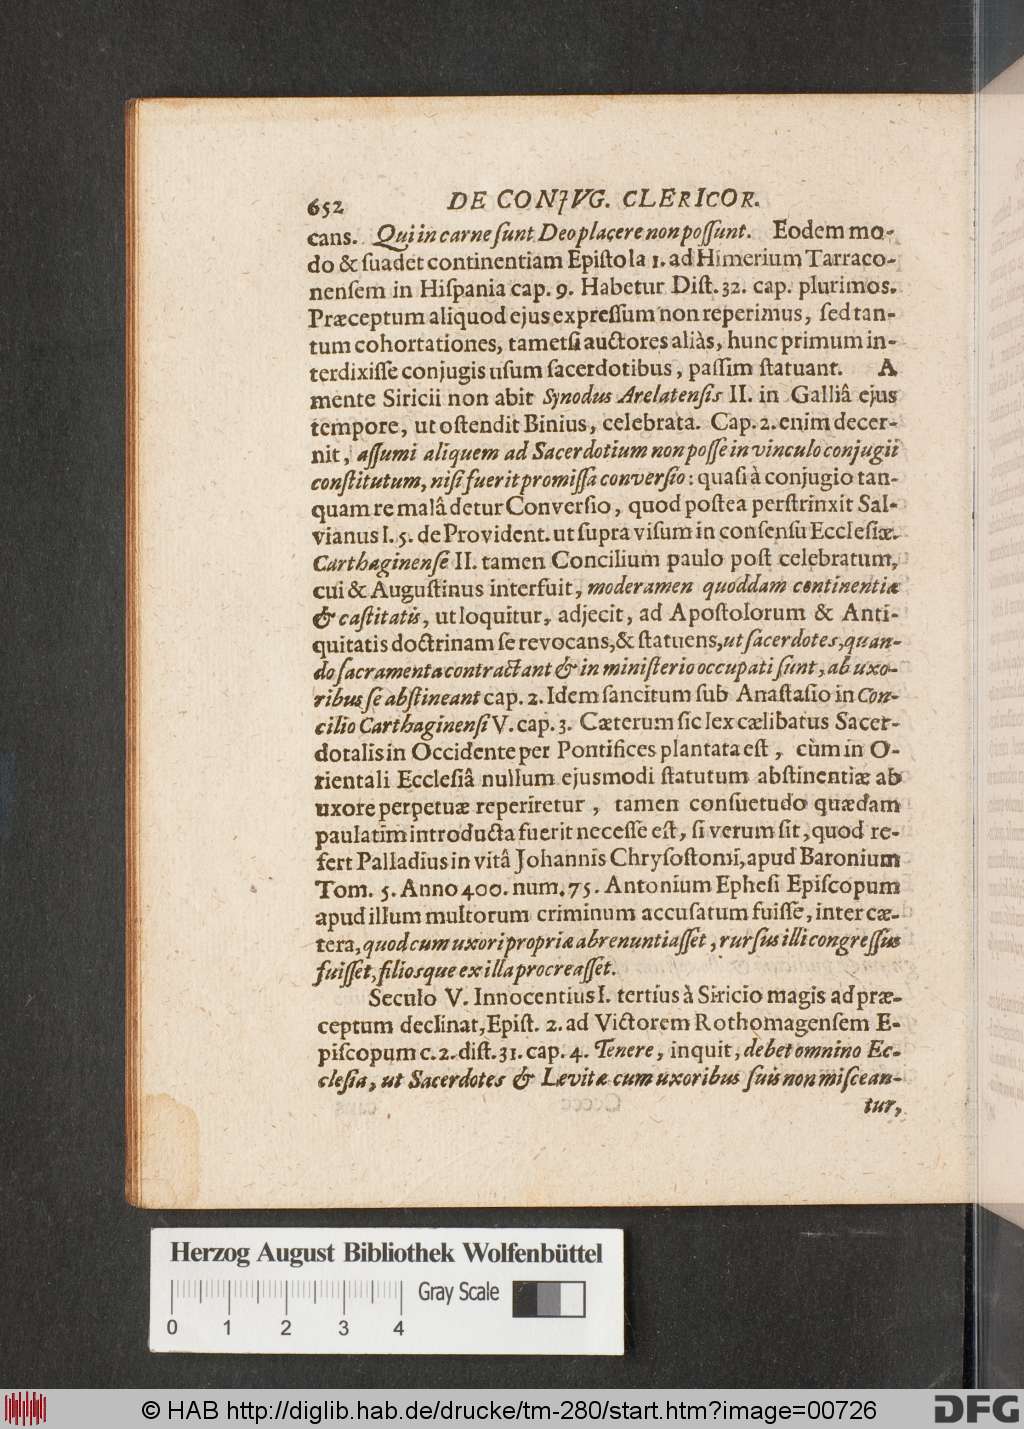 652 DE CONJVG. CLERICOR.
cans. Qui in carne ſunt Deo placere non poſſunt. Eodem mo-
do & ſuadet continentiam Epiſtola 1. ad Himerium Tarraco-
nenſem in Hiſpania cap. 9. Habetur Diſt. 32. cap. plurimos.
Præceptum aliquod ejus expreſſum non reperimus, ſed tan-
tum cohortationes, tametſi auctores aliàs, hunc primum in-
terdixiſſe conjugis uſum ſacerdotibus, paſſim ſtatuant. A
mente Siricii non abit Synodus Arelatenſis II. in Galliâ ejus
tempore, ut oſtendit Binius, celebrata. Cap. 2. enim decer-
nit, aſſumi aliquem ad Sacerdotium non poſſe in vinculo conjugii
conſtitutum, niſi fuerit promiſſa converſio: quaſi à conjugio tan-
quam re malâ detur Converſio, quod poſtea perſtrinxit Sal-
vianus l. 5. de Provident. ut ſupra viſum in conſenſu Eccleſiæ.
Carthaginenſe II. tamen Concilium paulo poſt celebratum,
cui & Auguſtinus interfuit, moderamen quoddam continentiæ
& caſtitatis, ut loquitur, adjecit, ad Apoſtolorum & Anti-
quitatis doctrinam ſe revocans, & ſtatuens, ut ſacerdotes, quan-
do ſacramenta contractant & in miniſterio occupati ſunt, ab uxo-
ribus ſe abſtineant cap. 2. Idem ſancitum ſub Anaſtaſio in Con-
cilio Carthaginenſi V. cap. 3. Cæterum ſic lex cælibatus Sacer-
dotalis in Occidente per Pontifices plantata eſt, cùm in O-
rientali Eccleſiâ nullum ejusmodi ſtatutum abſtinentiæ ab
uxore perpetuæ reperiretur, tamen conſuetudo quædam
paulatim introducta fuerit neceſſe eſt, ſi verum ſit, quod re-
fert Palladius in vitâ Johannis Chryſoſtomi, apud Baronium
Tom. 5. Anno 400. num. 75. Antonium Epheſi Epiſcopum
apud illum multorum criminum accuſatum fuiſſe, inter cæ-
tera, quod cum uxori propriæ abrenuntiaſſet, rurſus illi congreſſus
fuiſſet, filiosque ex illa procreaſſet.
Seculo V. Innocentius I. tertius à Siricio magis ad præ-
ceptum declinat, Epiſt. 2. ad Victorem Rothomagenſem E-
piſcopum c. 2. diſt. 31. cap. 4. Tenere, inquit, debet omnino Ec-
cleſia, ut Sacerdotes & Levitæ cum uxoribus ſuis non miſcean-
tur,
Herzog August Bibliothek Wolfenbüttel
Gray Scale
0 1 2 3 4
© HAB http://diglib.hab.de/drucke/tm-280/start.htm?image=00726
DFG